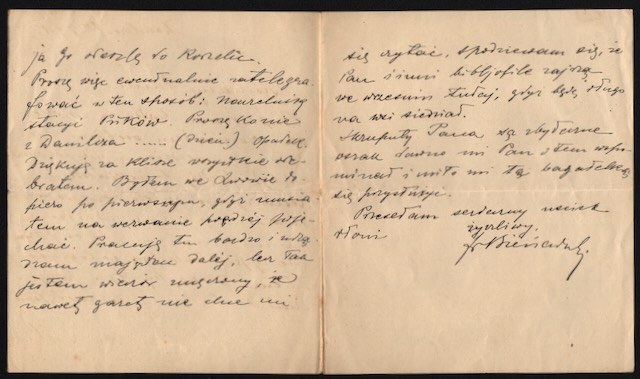 ja go odeszlę do Korzelic.
Proszę więc ewentualnie zatelegra-
fować w ten sposób: Naczelnik
stacyi Pików. Proszę konie
z Danilcza ..... (dniu).
Dziękuję za klisze wszystkie ode-
brałem. Byłem we Lwowie do-
piero po pierwszym, gdyż musia-
łem na wezwanie prędzej poje-
chać. Pracuję tu bardzo i urzą-
dzam majątek dalej, lecz tak
jestem wieczór zmęczony, że
nawet gazety nie chce mi
się czytać. Spodziewam się, że
Pan i inni bibljofile zajrzą
we wrześniu tutaj, gdyż będę długo
na wsi siedział.
Skrupuły Pana są zbyteczne
wszak dawno mi Pan o tem wspo-
minał i miło mi tą bagatelką
się przysłużyć.
Przesyłam serdeczny uścisk
dłoni
życzliwy.